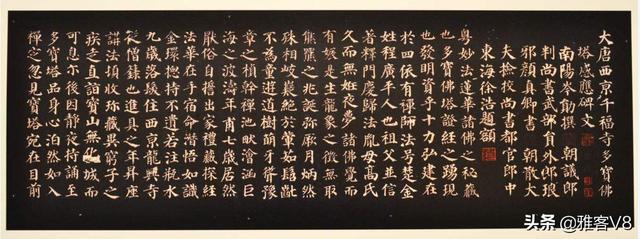 大唐西京千福寺多寶佛
塔感應碑文
南陽岑勛撰 朝議郎
判尚書武部員外郎琅
邪顏真卿書 朝散大
夫撿挍尚書都官郎中
東海徐浩題額
粵妙法蓮華諸佛之秘藏
也多寶佛塔證經之踴現
也發明資乎十力弘建在
於四依有禪師法号楚金
姓程廣平人也祖父並信
著釋門慶歸法胤母高氏
久而無姙夜夢諸佛覺而
有娠是生龍象之徵無取
熊羆之兆誕弥厥月炳然
殊相岐嶷絕於葷茹髫齔
不為童遊道樹萌牙聳豫
章之楨幹禪池畎澮涵巨
海之波濤年甫七歲居然
猒俗自誓出家禮藏探經
法華在手宿命潛悟如識
金環揔持不遺若注瓶水
九歲落髮住西京龍興寺
從僧籙也進具之年昇座
講法頓收珍藏異窮子之
疾走直詣寶山無化城而
可息尔後因靜夜持誦至
多寶塔品身心泊然如入
禪定忽見寶塔宛在目前
头条 @雅客V8